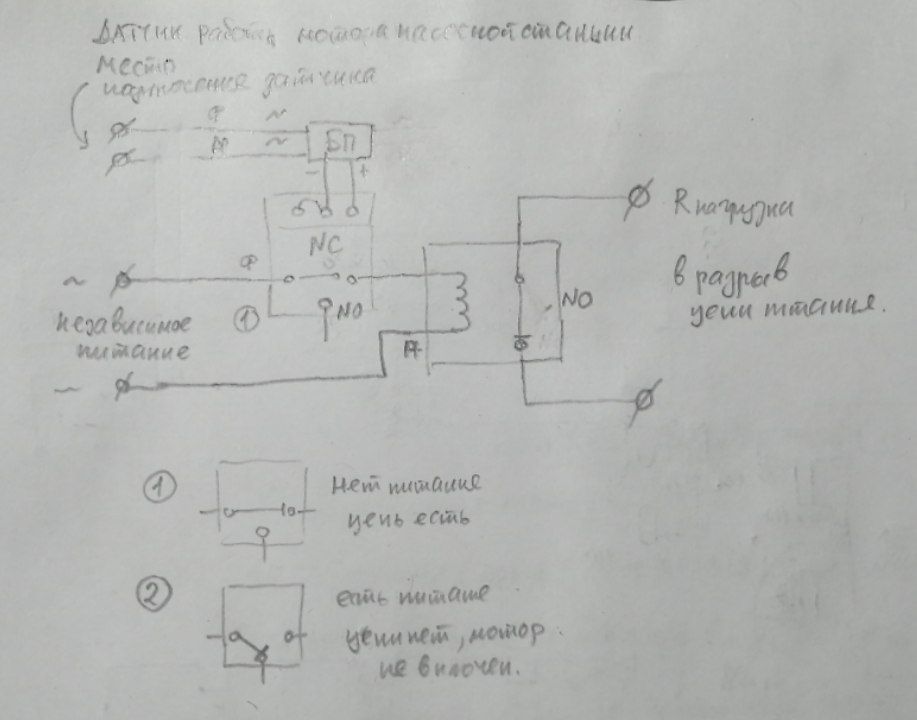 Датчик работы мотора насосной станции.
место
положение датчика
Ф ~
~ БП
- +
NC
Ф
~
NO
1
независимое
питание
A
NO
R нагрузки
в разрыв
цепи питания.
1
Нет питание
цепь есть
2
есть питание
цепи нет, мотор
не включен.